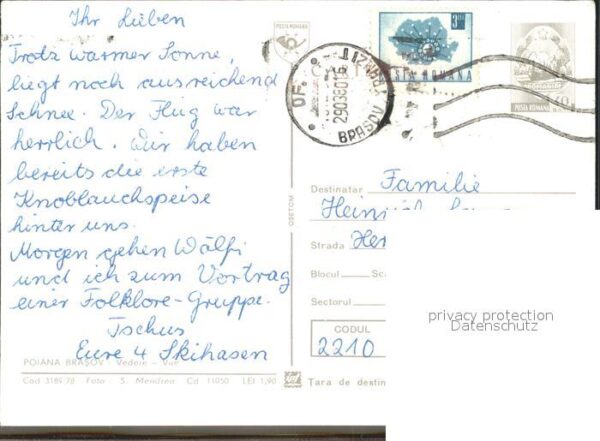 Ihr Lieben
Trotz warmer Sonne,
liegt noch ausreichend
Schnee. Der Flug war
herrlich. Wir haben
bereits die erste
Knoblauchspeise
hinter uns.
Morgen gehen Wälfi
und ich zum Vortrag
einer Folklore-Gruppe.
Tschus
Eure 4 Skihasen
POIANA BRAŞOV - Vedere - Vue
Cod 3189/78 Foto: S. Mendrea Cd 11050 LEI 1,90
POSTA ROMANA
OF.
TRANZIT
BRAȘOV
290380
POSTA ROMANA
DSETOM
Destinatar Familie
Heinrich
Strada
Blocul
Sectorul
CODUL
2210
Țara de destin
privacy protection
Datenschutz